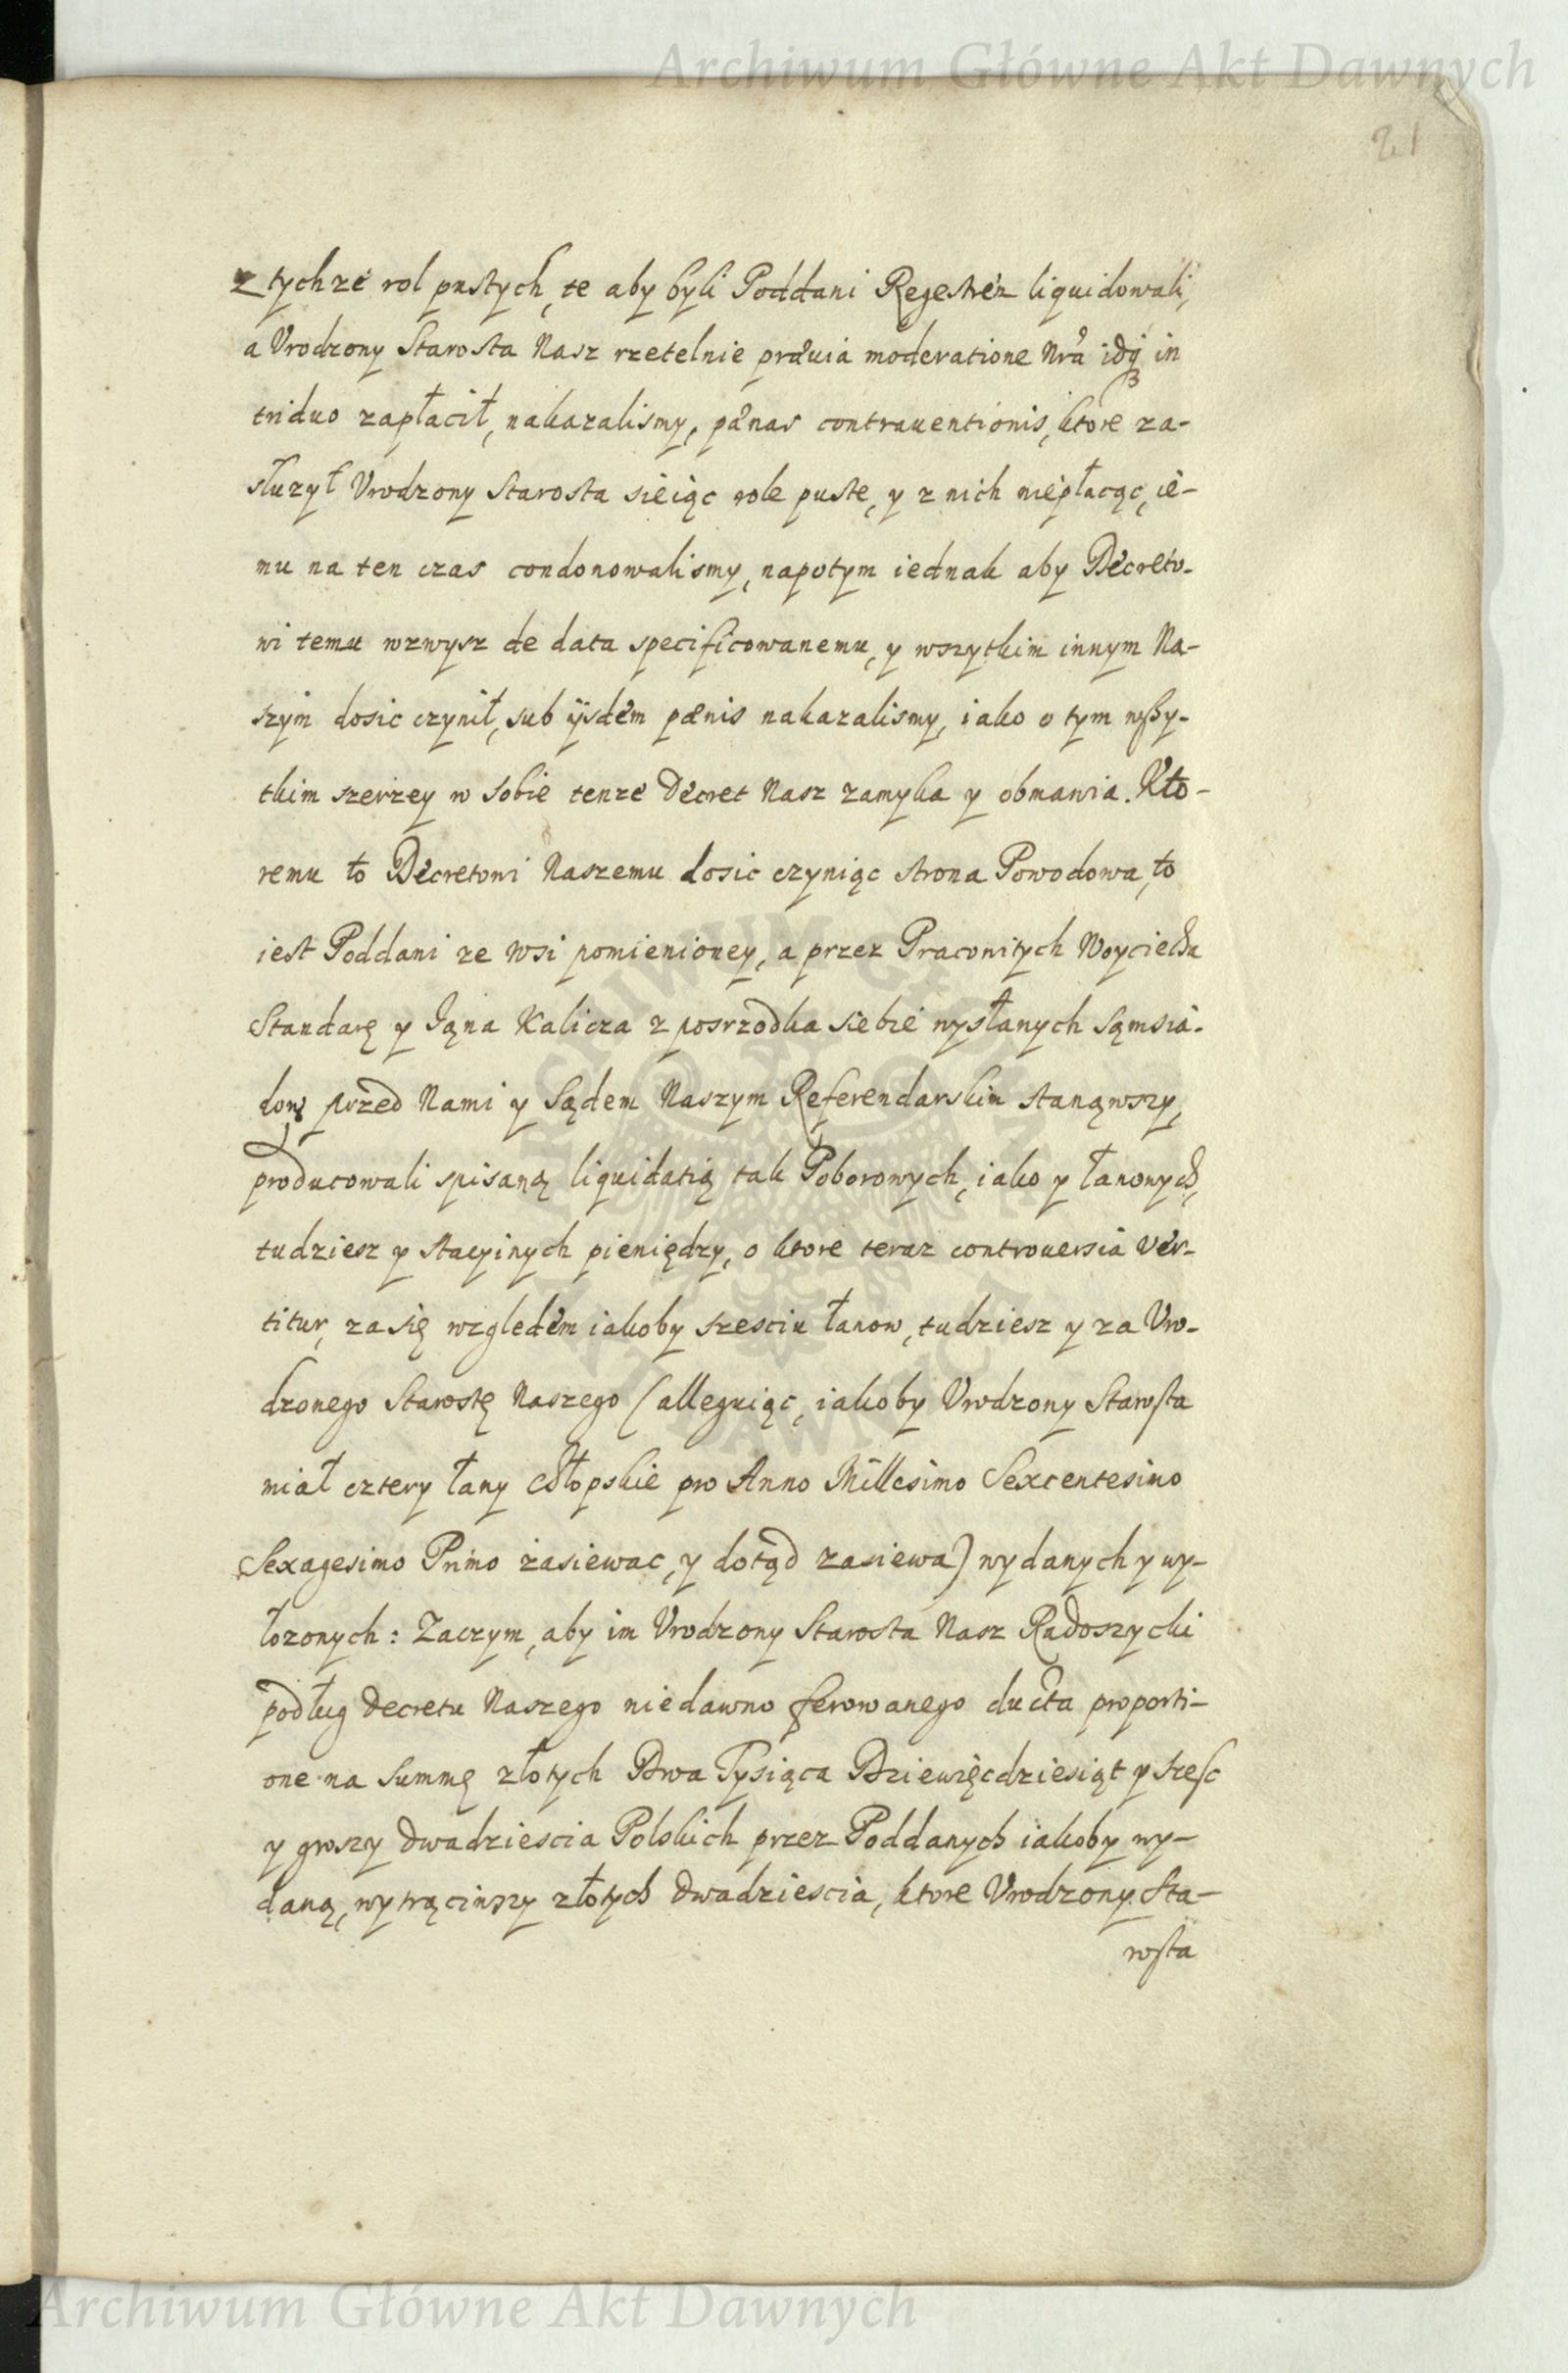 Archiwum Główne Akt Dawnych
21
z tychze rol pustych, te aby byli Poddani Regestrez liquidowali,
a Vrodzony Starosta Nasz rzetelnie præuia moderatione Nrã idq in
triduo zapłacił, nakazalismy, pænas contrauentionis, ktore za-
służył Vrodzony Starosta sieiąc role puste, y z nich niepłacąc, ie-
mu na ten czas condonowalismy, napotym iednak aby Decreto-
wi temu wzwysz de data specificowanemu, y wszytkim innym Na-
szym dosic czynił, sub ijsdem pænis nakazalismy, iako o tym wszy-
tkim szerzey w sobie tenze Decret Nasz zamyka y obmawia. Kto-
remu to Decretowi Naszemu dosic czyniąc strona Powodowa, to
iest Poddani ze wsi pomienioney, a przez Pracowitych Woyciecha
Standarę y Iąna Kalicza z posrzodka siebie wysłanych Sąmsia-
dow przed Nami y Sądem Naszym Referendarskim stanąwszy,
producowali spisaną liquidatią tak Poborowych, iako y łanowych,
tudziesz y stacyinych pieniędzy, o ktore teraz controuersia ver-
titur, za się względem iakoby szesciu łanow, tudziesz y za Vro-
dzonego Starostę Naszego (alleguiąc, iakoby Vrodzony Starosta
miał cztery łany chłopskie pro Anno Millesimo Sexcentesimo
Sexagesimo Primo zasiewac, y dotąd zasiewa) wydanych y wy-
łozonych: Zaczym, aby im Vrodzony Starosta Nasz Radoszycki
podług Decretu Naszego niedawno ferowanego ducta proporti-
one na summę złotych Dwa Tysiąca Dziewięcdziesiąt y szesc
y groszy dwadziescia Polskich przez Poddanych iakoby wy-
daną, wytrąciwszy złotych dwadziescia, ktore Vrodzony Sta-
rosta
Archiwum Główne Akt Dawnych